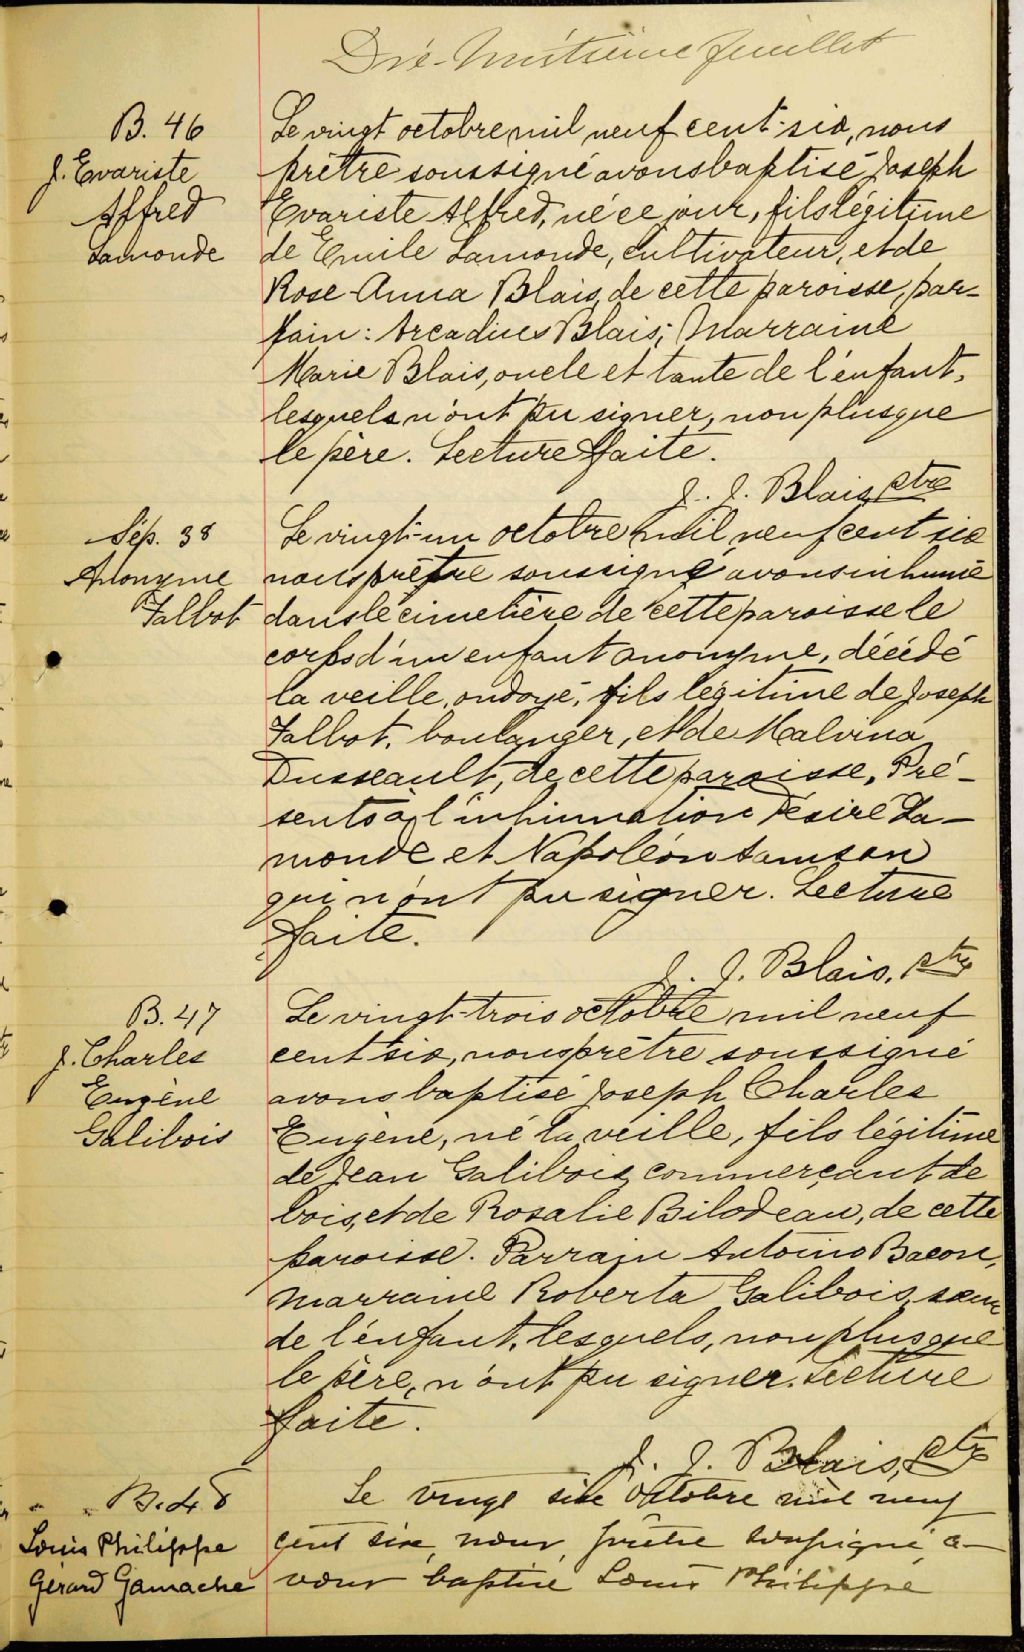 Dix-huitième feuillet
B. 46
J. Evariste
Alfred
Lamonde
Le vingt octobre mil neuf cent-six, nous
prêtre soussigné avons baptisé Joseph
Evariste Alfred, né ce jour, fils légitime
de Emile Lamonde, cultivateur, et de
Rose-Anna Blais, de cette paroisse, par-
rain: Arcadius Blais; Marraine
Marie Blais, oncle et tante de l'enfant,
lesquels n'ont pu signer, non plus que
le père. Lecture faite.
J. J. Blais ptre
Sép. 38
Anonyme
Talbot
Le vingt-un octobre mil neuf cent six
nous prêtre soussigné avons inhumé
dans le cimetière de cette paroisse le
corps d'un enfant anonyme, décédé
la veille, ondoyé, fils légitime de Joseph
Talbot, boulanger, et de Malvina
Dusseault, de cette paroisse, Pré-
sents à l'inhumation Désiré La-
monde et Napoléon Samson
qui n'ont pu signer. Lecture
faite.
J. J. Blais, ptre
B. 47
J. Charles
Eugène
Galibois
Le vingt-trois octobre mil neuf
cent six, nous prêtre soussigné
avons baptisé Joseph Charles
Eugène, né la veille, fils légitime
de Jean Galibois, commerçant de
bois, et de Rosalie Bilodeau, de cette
paroisse. Parrain Antonio Bacon,
marraine Roberta Galibois, sœur
de l'enfant, lesquels, non plus que
le père, n'ont pu signer. Lecture
faite.
J. J. Blais, ptre
B. 48
Louis Philippe
Gérard Gamache
Le vingt six octobre mil neuf
cent six, nous, prêtre soussigné, a-
vons baptisé Louis Philippe